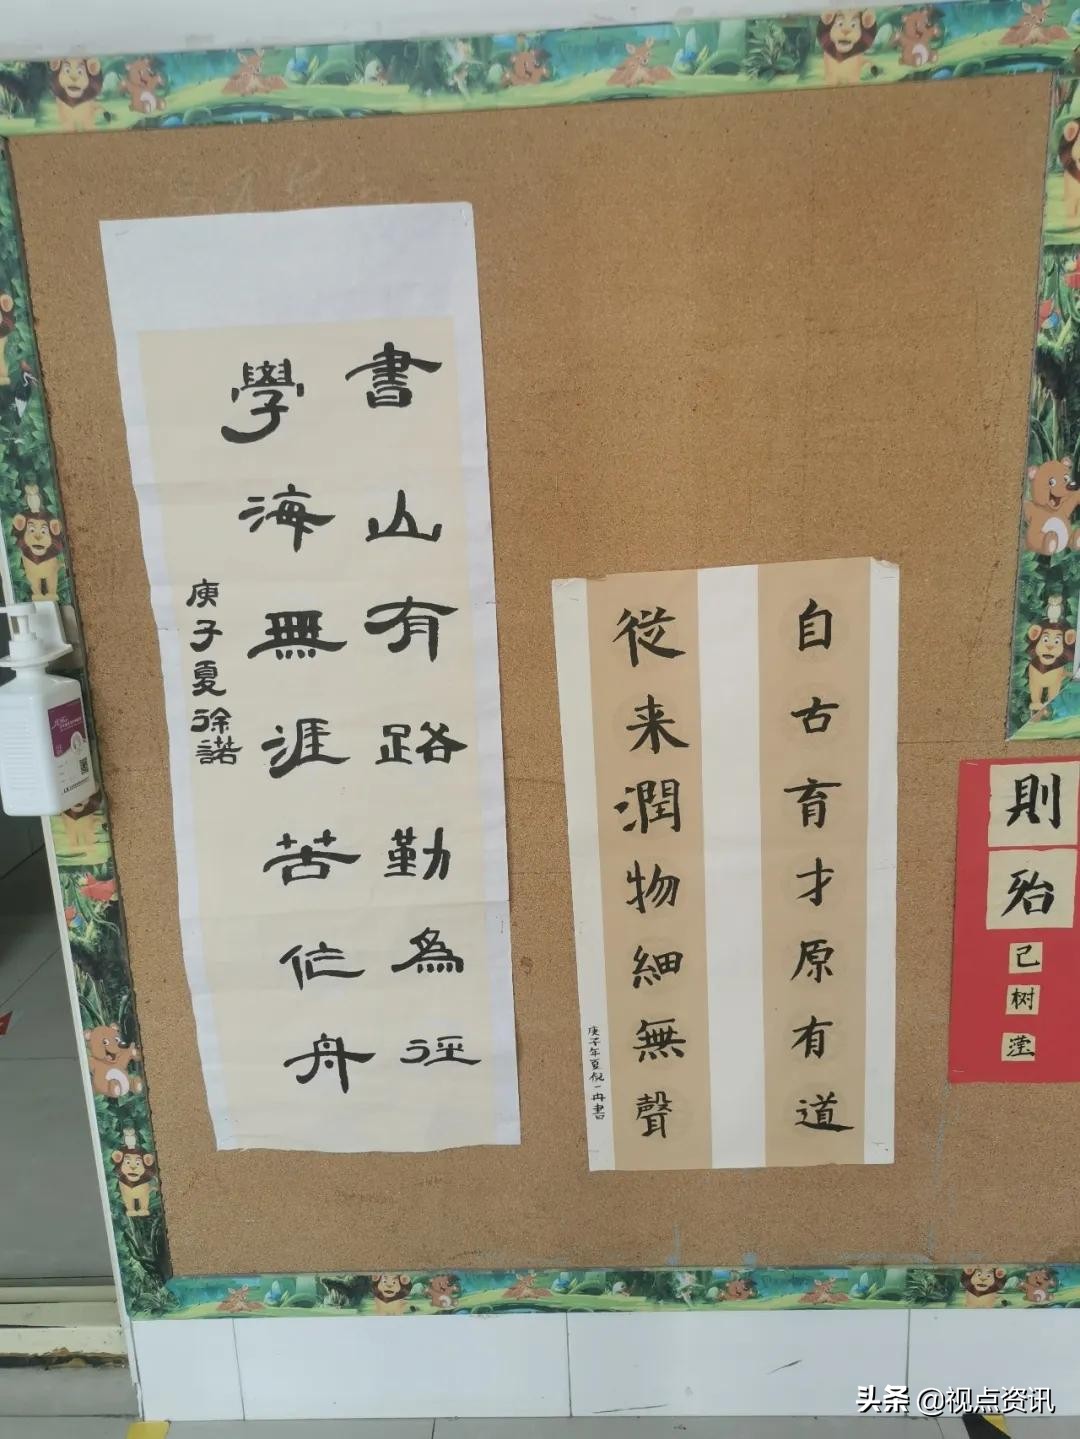 書山有路勤為徑
學海無涯苦作舟
庚子夏徐諾
自古育才原有道
從来潤物細無聲
庚子年夏倪一冉書
則殆
己树滢
头条 @视点资讯